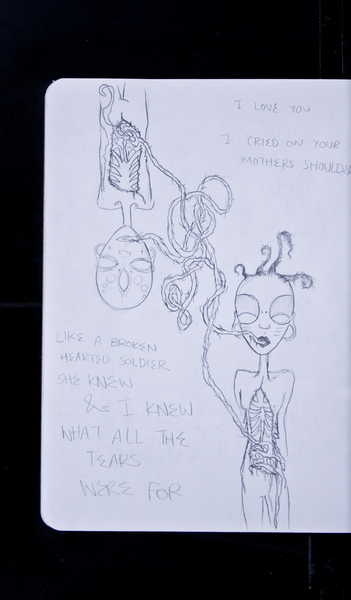 I LOVE YOU
I CRIED ON YOUR
MOTHERS SHOULDER
LIKE A BROKEN
HEARTED SOLDIER
SHE KNEW
& I KNEW
WHAT ALL THE
TEARS
WERE FOR